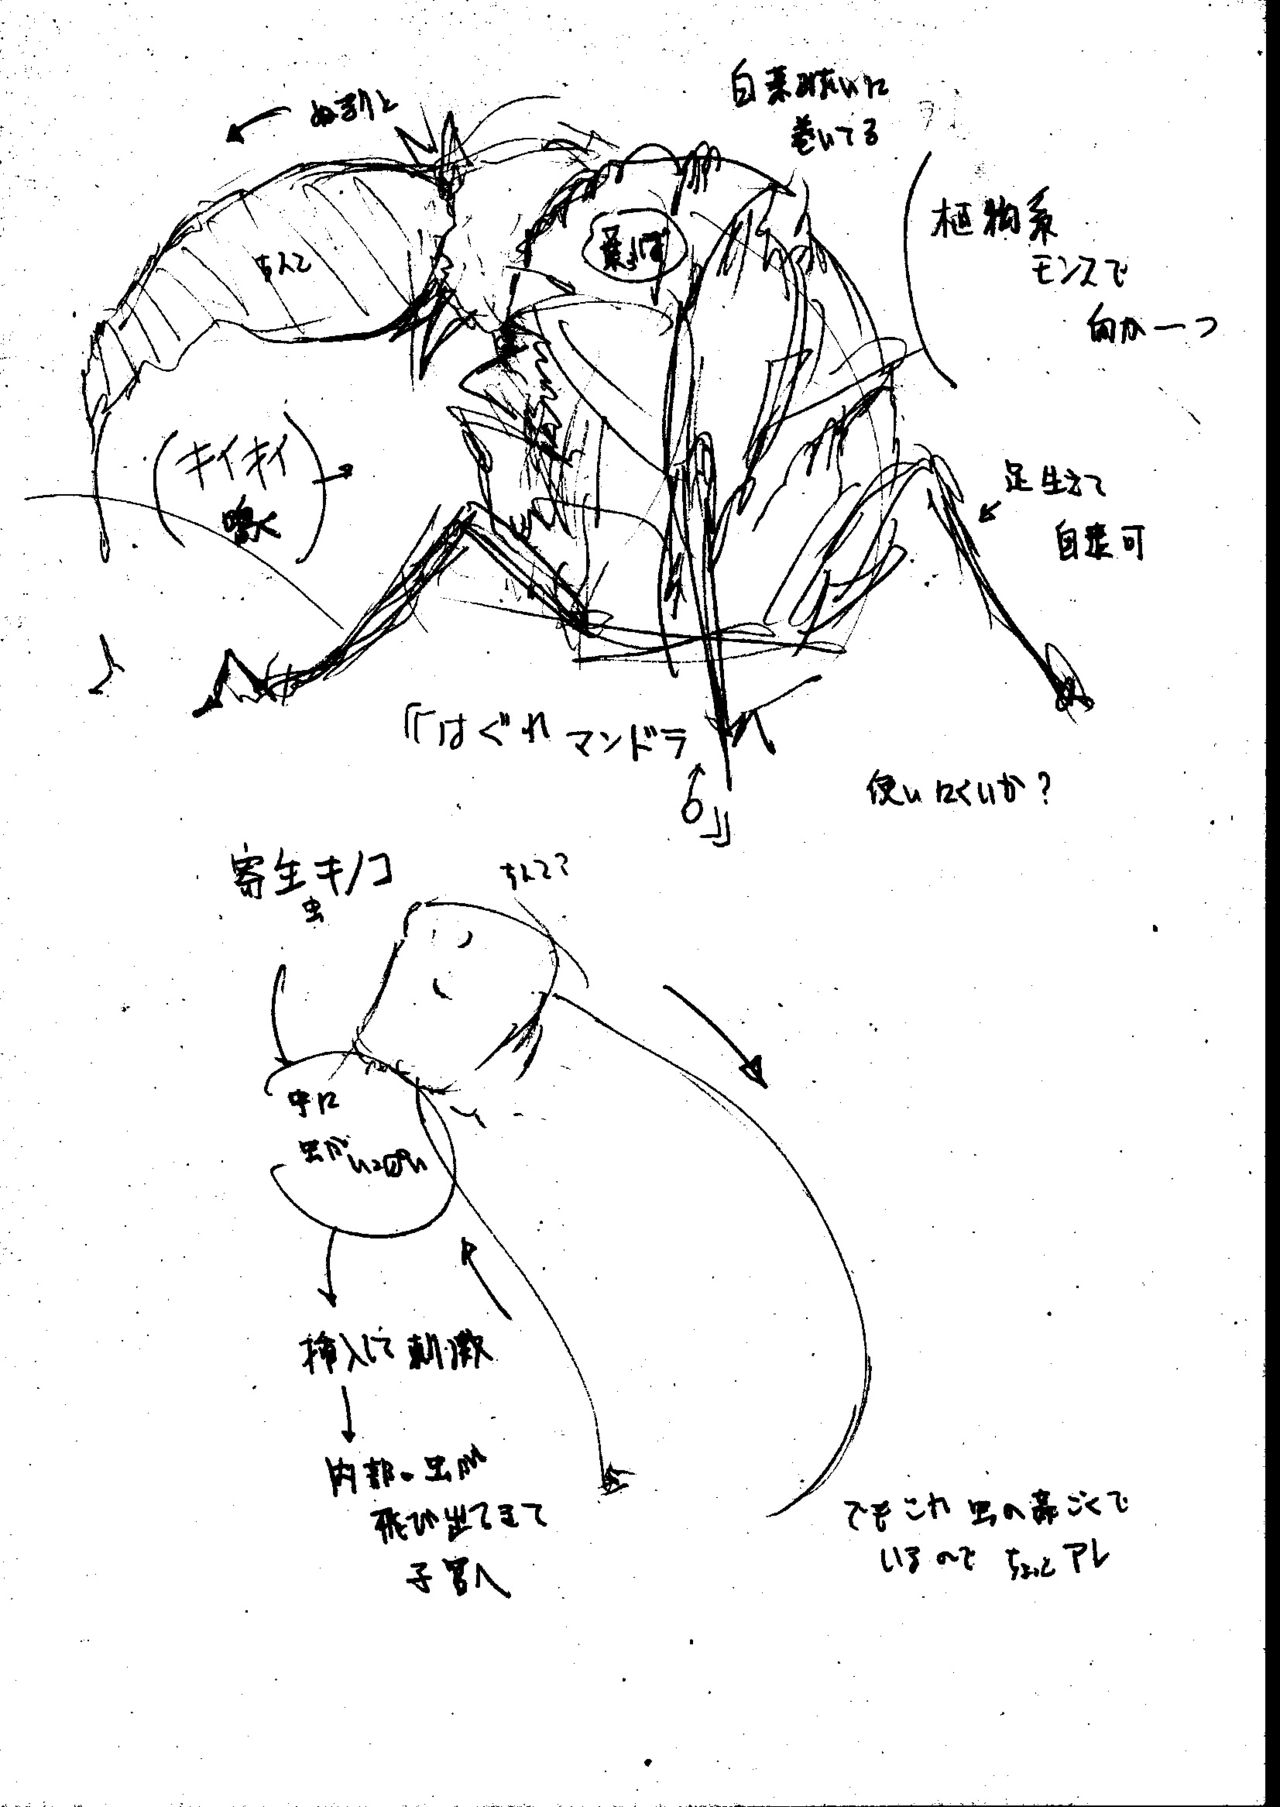 白菜みたいに
巻いてる
ぬるりと
植物系
モンスで
何か一つ
葉っぱ
ちんこ
(キイキイ
鳴く)
足生えて
自走可
『はぐれマンドラ
』
使いにくいか?
寄生キノコ
虫
ちんこ?
中に
虫がいっぱい
挿入して刺激
内部の虫が
飛び出てきて
子宮へ
でもこれ虫の
いるので ちょっとアレ